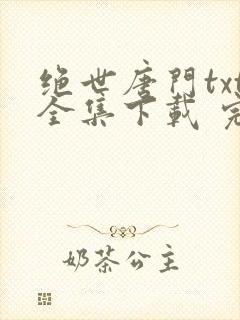 绝世唐門txt
全集下載 完
奶茶公主